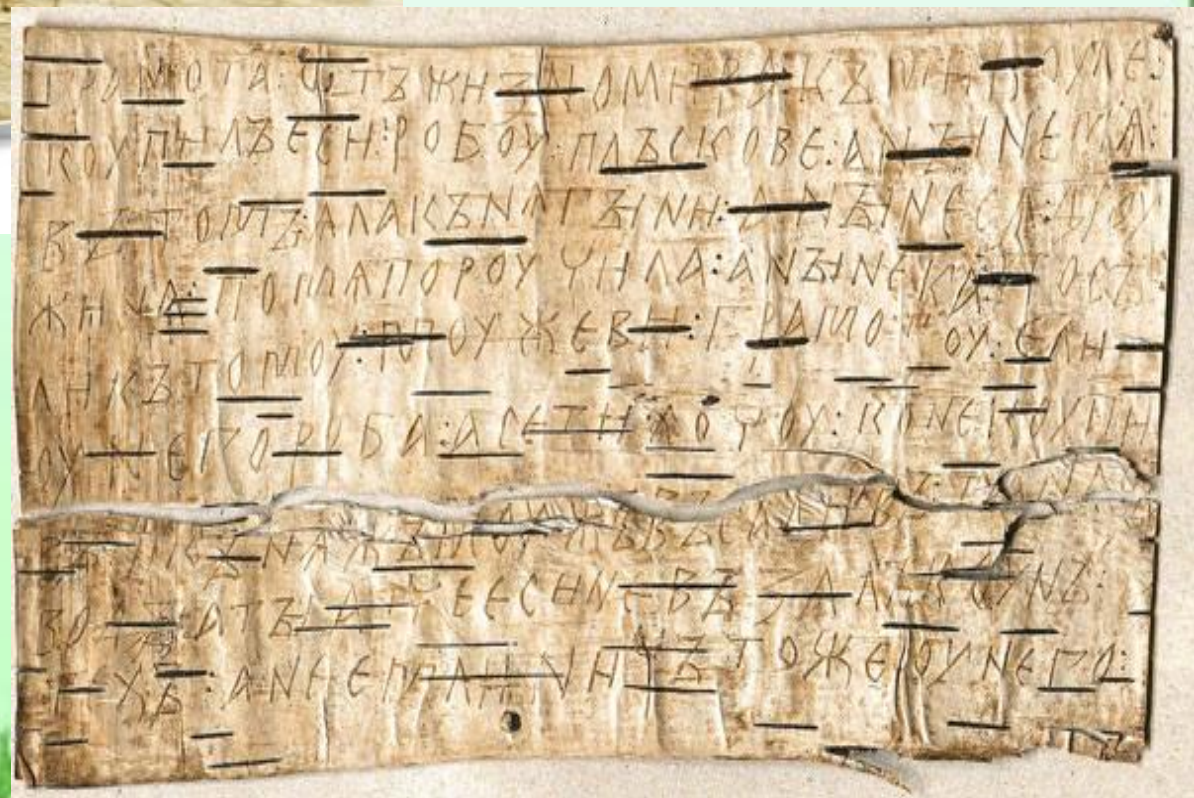 ГРАМОТА : ѠТЪ ЖИЗНОМИРА : КЪ МИКОУЛЕ :
КОУПИЛЪ ЕСИ : РОБОУ : ПЛЪСКОВЕ : А НЪІНЕ МѦ :
ВЪ ТОМЪ : ѦЛА КЪНѦГЪІНИ : А НЪІНЕ СѦ : ДРОУ
ЖИНА : ПО МѦ ПОРОУЧИЛА : А НЪІНЕ КА : ПОСЪ
ЛИ КЪ ТОМОУ : МОУЖЕВИ : ГРАМОТОУ : Е ЛИ
ОУ НЕГО РОБА : А СЕ ТИ ХОЧОУ : КОНЕ КОУПИ
ВЪ : И КЪНѦЖЪ МОУЖЪ ВЪСАДИВЪ : ТА НА СЪ
ВОДЪІ : А ТЪІ АТЧЕ ЕСИ НЕ ВЪЗАЛЪ КОУНЪ :
ТѢХЪ : А НЕ ЕМЛИ : НИЧЪТО ЖЕ ОУ НЕГО :